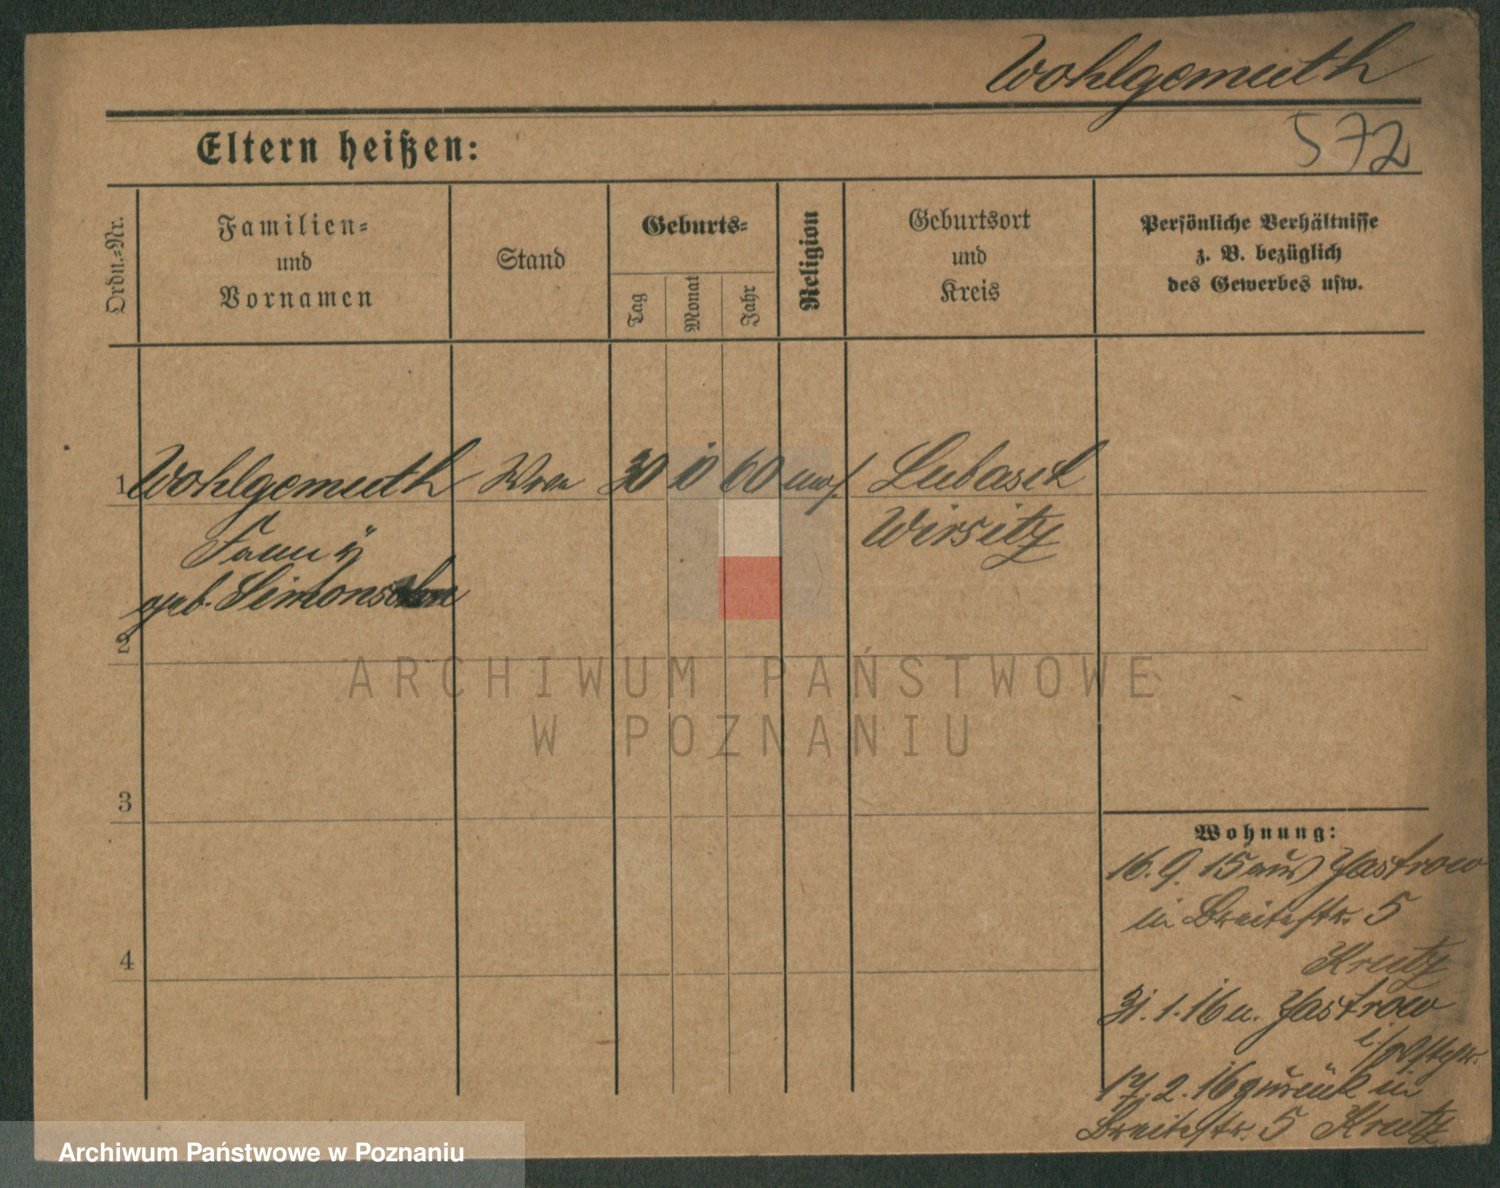 Wohlgemuth
572
Eltern heißen:
Ordn.-Nr.
Familien-
und
Vornamen
Stand
Geburts-
Tag
Monat
Jahr
Religion
Geburtsort
und
Kreis
Persönliche Verhältnisse
z. B. bezüglich
des Gewerbes usw.
1 Wohlgemuth Wwe 30 10 60 Lubasch
Fanny Wirsitz
geb. Simonsohn
2
ARCHIWUM PAŃSTWOWE
W POZNANIU
3
4
Wohnung:
16.9.15 aus Jastrow
in Breitestr. 5
Kreutz
31.1.16 n. Jastrow
i/
17.2.16 zurück in
Breitestr. 5 Kreutz
Archiwum Państwowe w Poznaniu